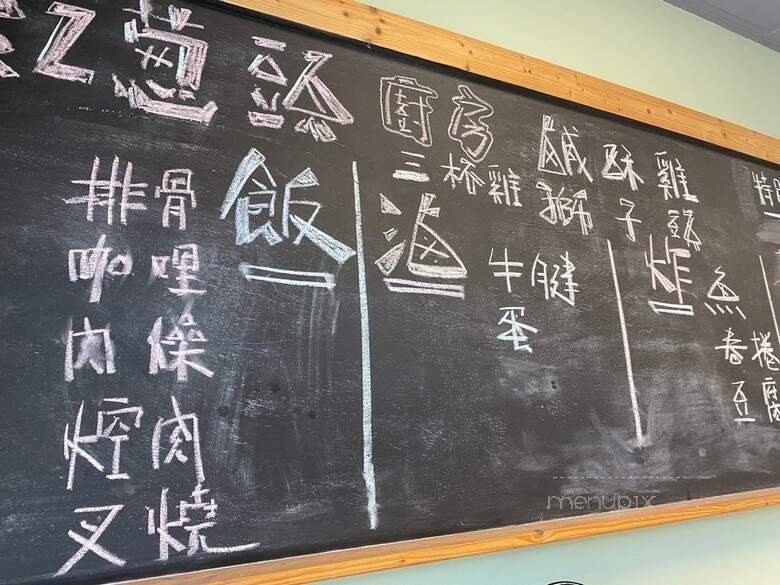 紅蔥頭 廚房
鹹酥雞
三杯雞
獅子頭
飯
排骨
咖哩
肉燥
焢肉
叉燒
滷
牛腱
蛋
炸
魚
春捲
豆腐
特
menupix